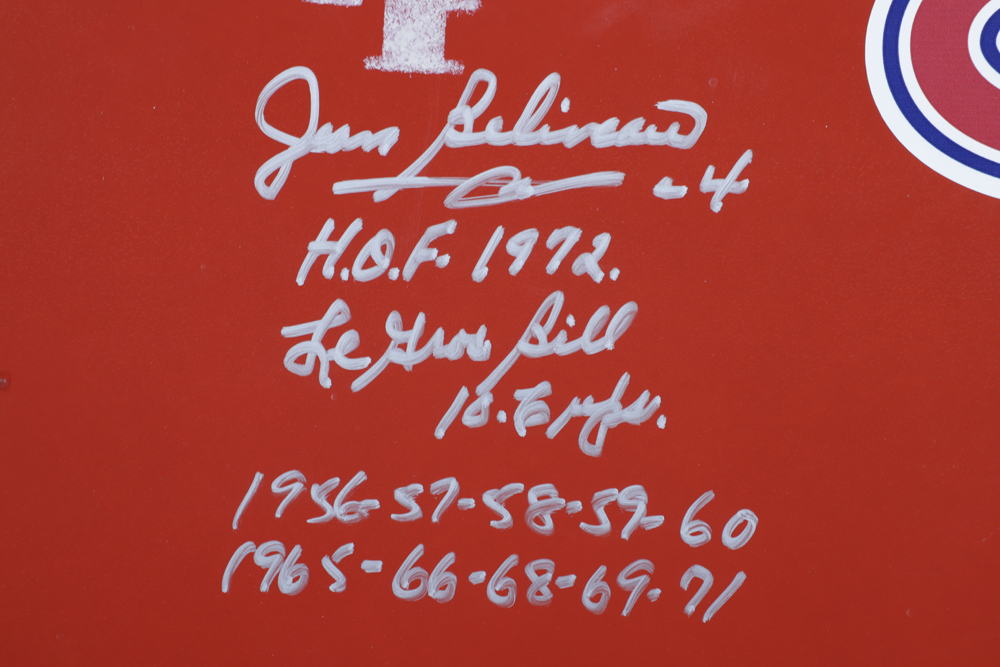 Jean Beliveau -4
H.O.F. 1972.
Le Gros Bill
10. Cups.
1956-57-58-59-60
1965-66-68-69-71